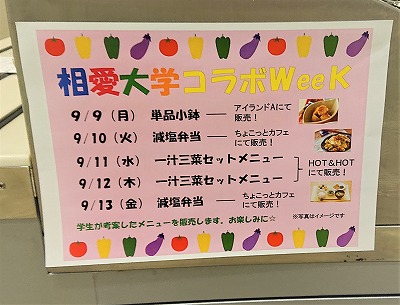 相愛大学コラボWeeK
9/9(月) 単品小鉢 ―― アイランドAにて販売!
9/10(火) 減塩弁当 ―― ちょこっとカフェにて販売!
9/11(水) 一汁三菜セットメニュー
9/12(木) 一汁三菜セットメニュー
HOT&HOTにて販売!
9/13(金) 減塩弁当 ―― ちょこっとカフェにて販売!
学生が考案したメニューを販売します。お楽しみに☆
※写真はイメージです